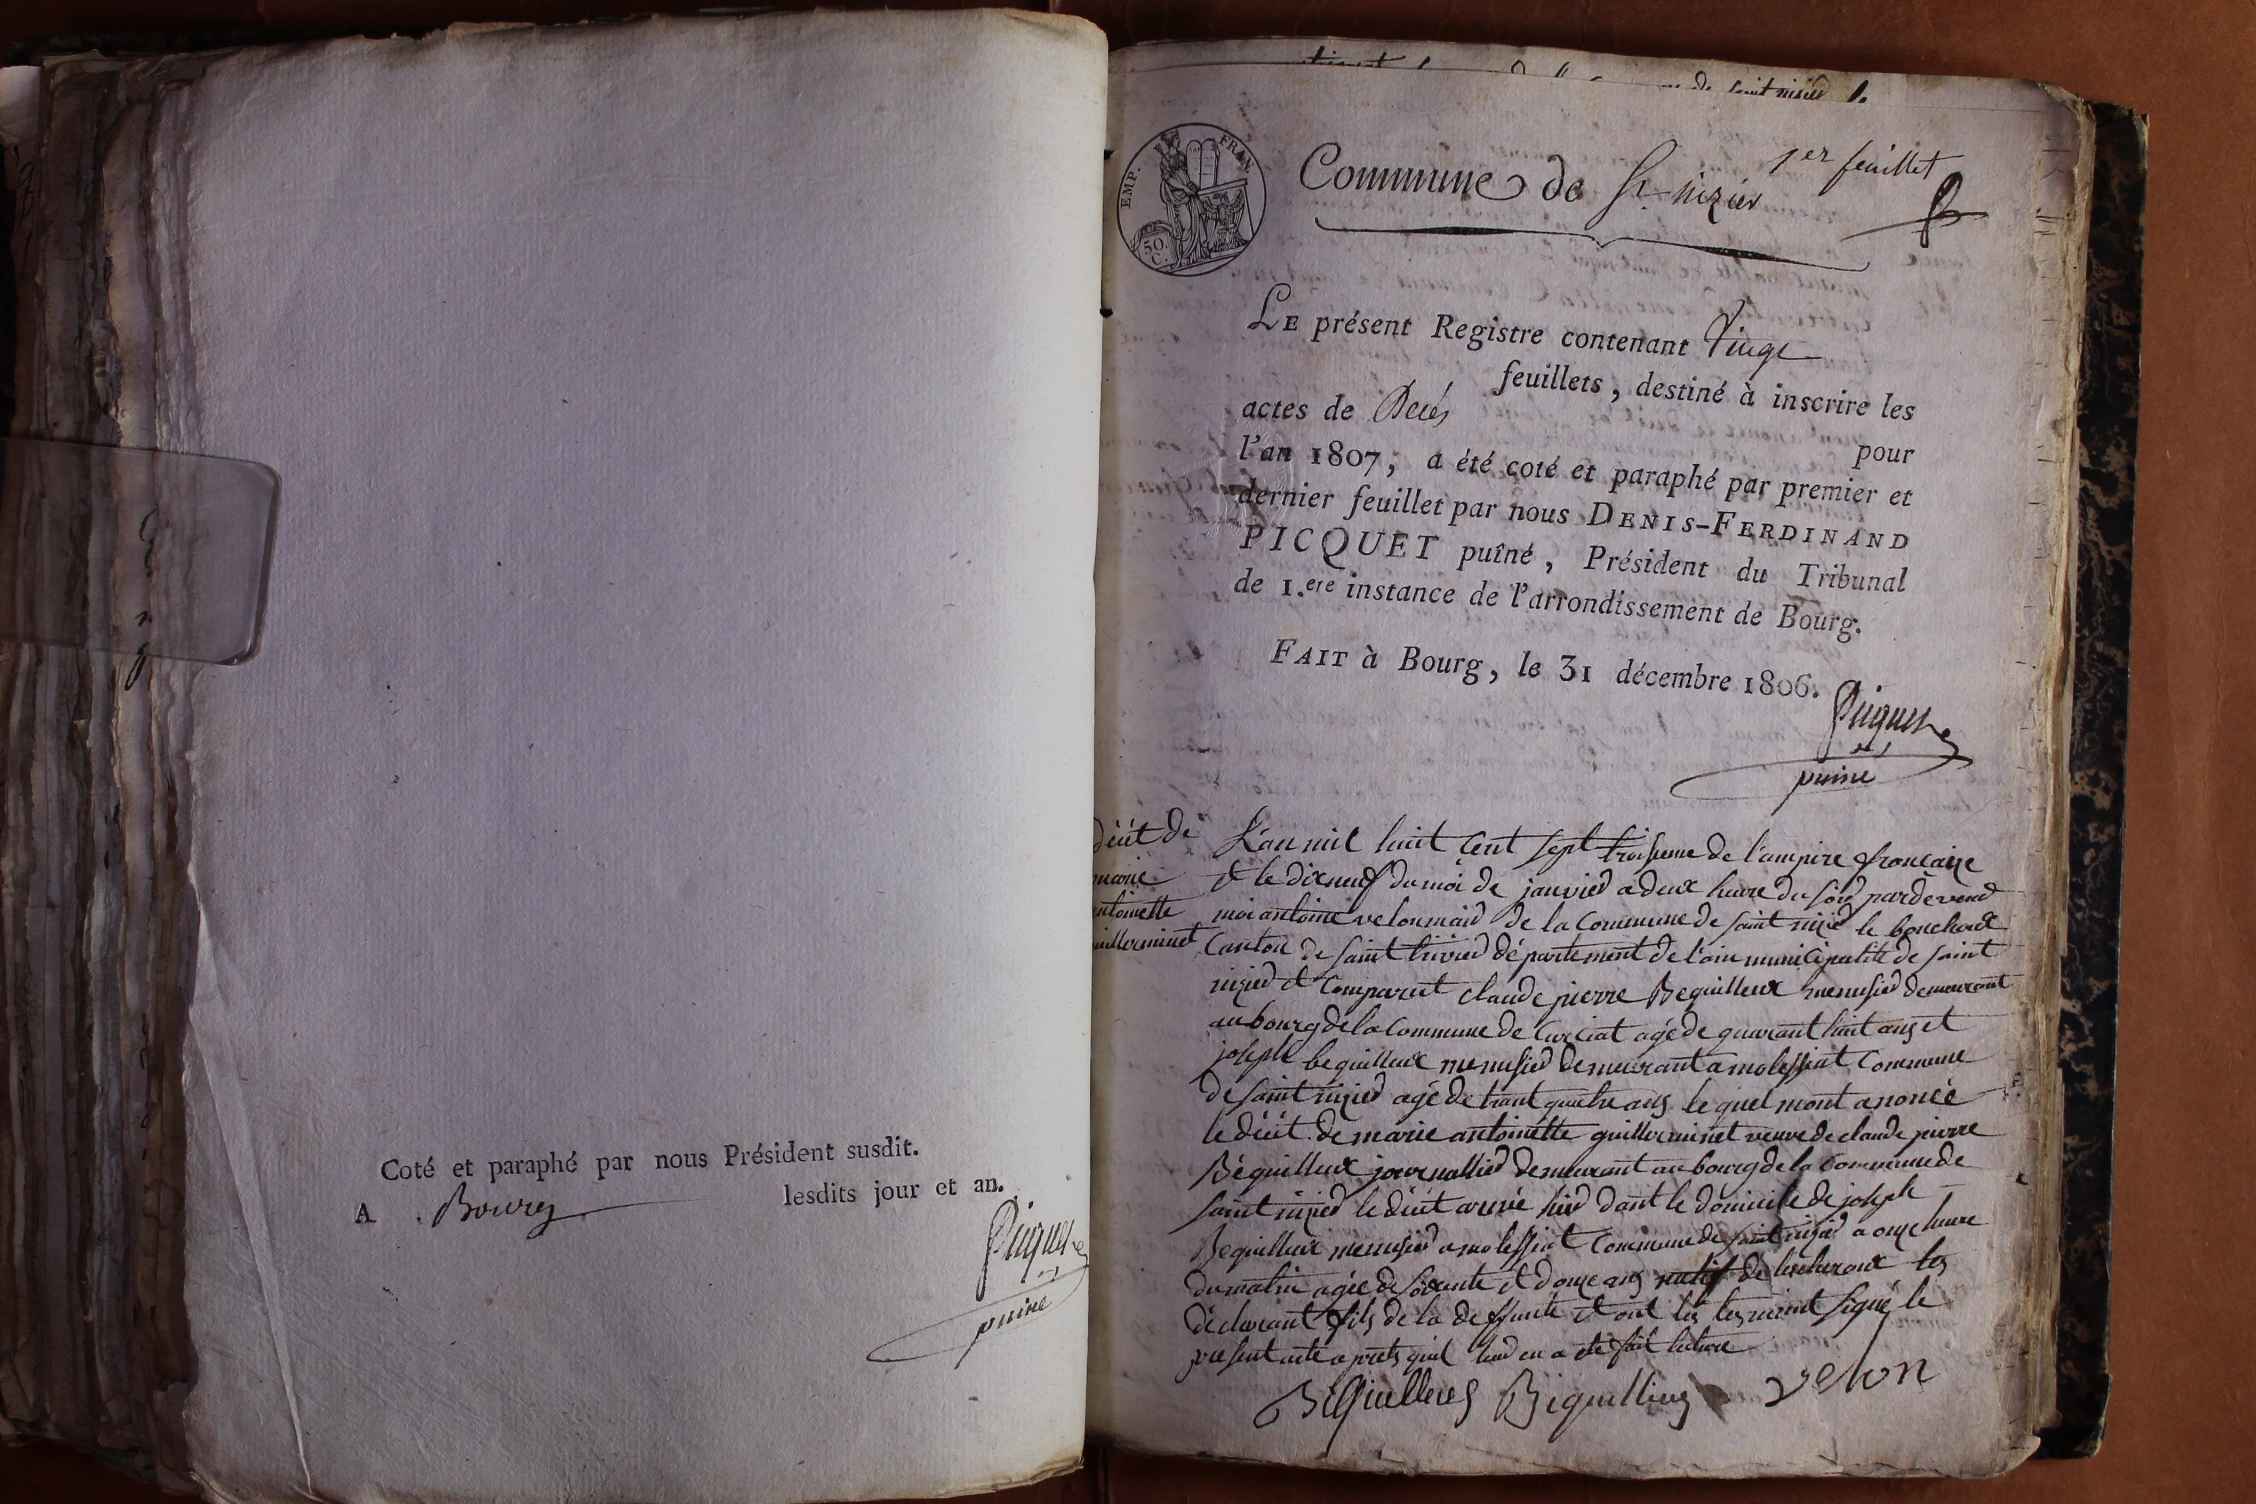 Coté et paraphé par nous Président susdit.
A Bourg lesdits jour et an.
Picquet
puiné
de saint nizied le
EMP. FRAN.
50. C.
1er feuillet
Commune de St. nizier
LE présent Registre contenant Vingt
feuillets, destiné à inscrire les
actes de Decés pour
l'an 1807, a été coté et paraphé par premier et
dernier feuillet par nous DENIS-FERDINAND
PICQUET puîné, Président du Tribunal
de 1.ere instance de l'arrondissement de Bourg.
FAIT à Bourg, le 31 décembre 1806.
Picquet
puiné
décét de
marie
antoinette
guillerminet
L'an mil huit cent sept troisieme de l'ampire francaise
et le dixneuf du moi de janvied a deux heure du soir pardevend
moi antoine velon maid de la commune de saint nizied le bouchoux
canton de saint trivied département de l'ain municipalité de saint
nizied et comparut claude pierre Bequilleux menusied demeurant
au bourg de la commune de curciat agé de quarant huit ans et
joseph bequilleux menusied demeurant a molessiat commune
de saint nizied agé de trant quatre ans lequel mont anoncé
le décét de marie antoinette guillerminet veuve de claude pierre
Béquilleux journallied demeurant au bourg de la commune de
saint nizied le décét arivé hied dant le domicile de joseph
Bequilleux menusied a molessiat commune de saint nizied a onze heure
du matin agée de soixante et douze ans natif de les
déclarant fils de la deffunte et ont les signé le
present acte aprets quil leud en a eté fait lecture
Béquilleux Béquilleux velon